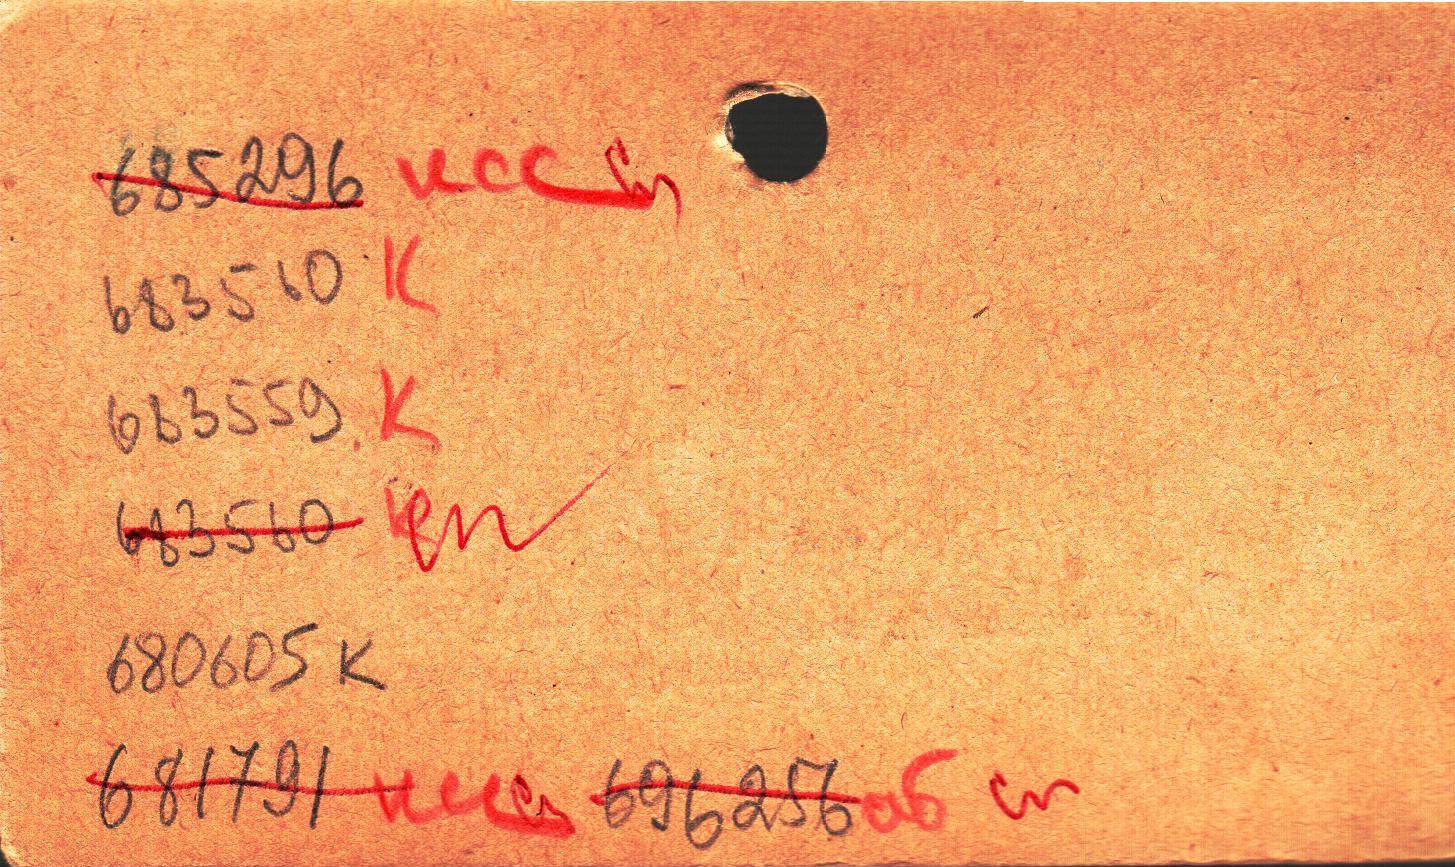 685296 исс сп
683560 К
683559. К
683560
680605 К
681791 696256 аб сп